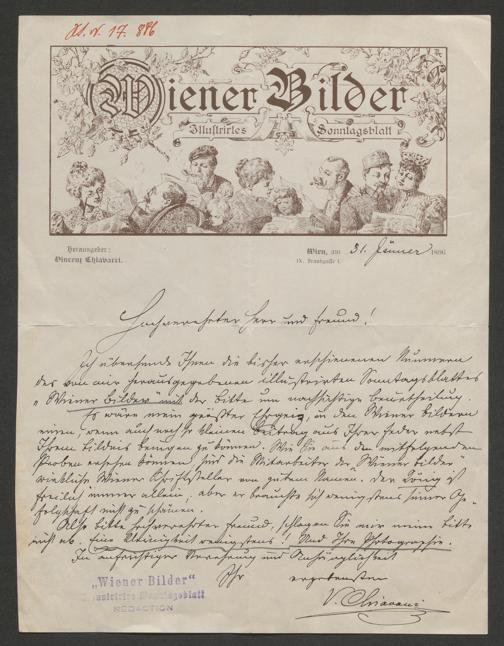 Wiener Bilder
Illustrirtes Sonntagsblatt
Herausgeber:
Vincenz Chiavacci.
Wien, am 31. Jänner 1896
Hochverehrter Herr und Freund!
Ich übersende Ihnen die bisher erschienenen Nummern
des von mir herausgegebenen illustrirten Sonntagsblattes
„Wiener Bilder“ mit der Bitte um nachsichtige Beurtheilung.
Es wäre mein größter Ehrgeiz, in den Wiener Bildern
einen, wenn auch noch so kleinen Beitrag aus Ihrer Feder nebst
Ihrem Bildniß bringen zu können. Wie Sie aus den mitfolgenden
Proben ersehen können, sind die Mitarbeiter der Wiener Bilder
wirkliche Wiener Schriftsteller von gutem Namen. Der König ist
freilich immer allein; aber er braucht sich wenigstens seiner Ge-
folgschaft nicht zu schämen.
Also bitte hochverehrter Freund, schlagen Sie mir meine Bitte
nicht ab. Eine Kleinigkeit wenigstens! Und Ihre Photographie.
In aufrichtiger Verehrung und Anhänglichkeit
Ihr ergebenster
V. Chiavacci
„Wiener Bilder“
Illustrirtes Sonntagsblatt
REDACTION